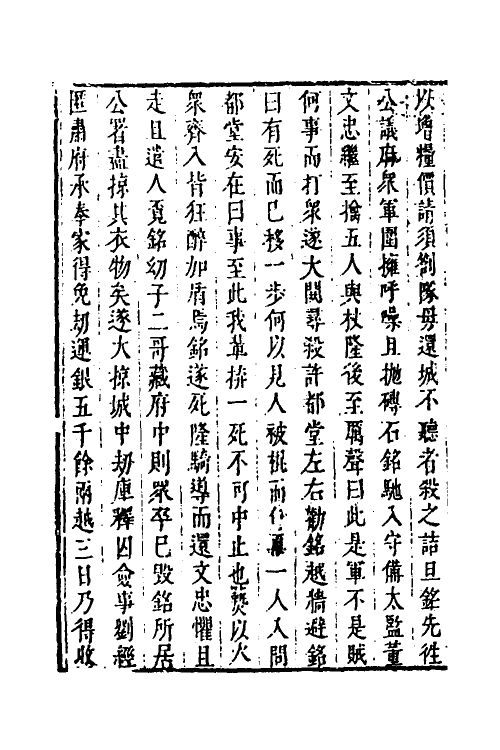 以增糧價請須劄隊毋還城不聽者殺之詰旦銘先徃
公議府衆軍圍擁呼噪且抛磚石銘馳入守備太監董
文忠繼至擒五人與杖隆後至厲聲曰此是軍不是賊
何事而打衆遂大閧尋殺許都堂左右勸銘越牆避銘
曰有死而已移一步何以見人被執而一人入問
都堂安在曰事至此我軰拚一死不可中止也焚以火
衆齊入皆狂醉加盾焉銘遂死隆騎導而還文忠懼且
走且遣人覔銘幼子二哥藏府中則衆卒已毀銘所居
公署盡掠其衣物矣遂大掠城中刼庫釋囚僉事劉經
匿肅府承奉家得免刼運銀五千餘兩越三日乃得收